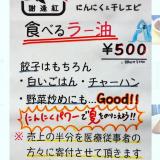 謝湊紅
にんにく&干しエビ
食べるラー油
¥500
餃子はもちろん
・白いごはん・チャーハン
・野菜炒めにも...Good!!
にんにくパワーで夏をのりきろう!!
※売上の半分を医療従事者の
方々に寄付させて頂きます